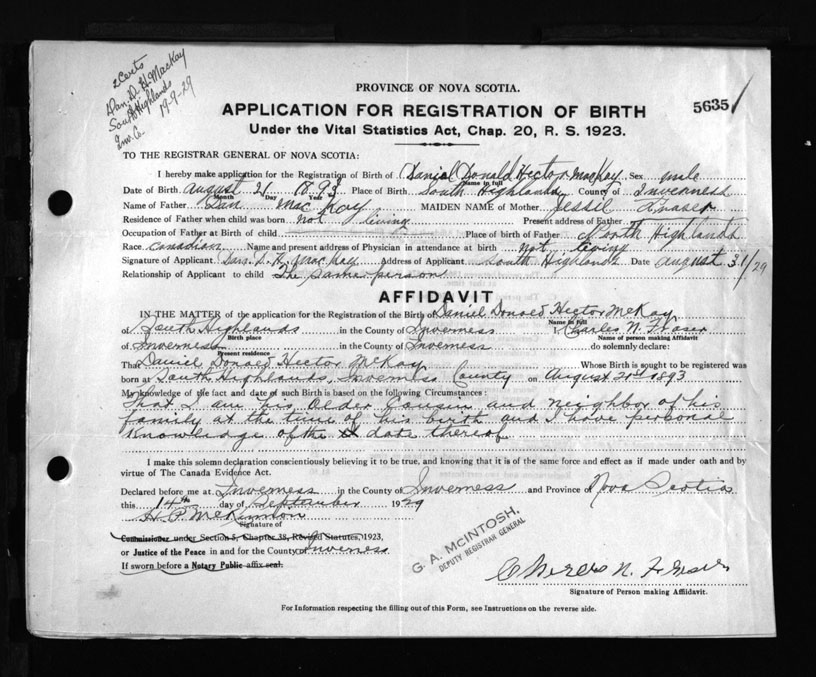 2 Certs
Dan D. H. MacKay
South Highlands
Inv. Co. 19-9-29
PROVINCE OF NOVA SCOTIA.
56351
APPLICATION FOR REGISTRATION OF BIRTH
Under the Vital Statistics Act, Chap. 20, R. S. 1923.
TO THE REGISTRAR GENERAL OF NOVA SCOTIA:
I hereby make application for the Registration of Birth of Daniel Donald Hector MacKay Sex male
Name in full
Date of Birth August 21 1893 Place of Birth South Highlands County of Inverness
Month Day Year
Name of Father Dan MacKay MAIDEN NAME of Mother Jessie Fraser
Residence of Father when child was born not living Present address of Father
Occupation of Father at Birth of child Place of birth of Father North Highlands
Race Canadian Name and present address of Physician in attendance at birth not living
Signature of Applicant Dan. D. H. MacKay Address of Applicant South Highlands Date August 31/29
Relationship of Applicant to child The same person
AFFIDAVIT
IN THE MATTER of the application for the Registration of the Birth of Daniel Donald Hector McKay
Name in full
of South Highlands in the County of Inverness I, Charles N. Fraser
Birth place Name of person making Affidavit
of Inverness in the County of Inverness do solemnly declare:
Present residence
That Daniel Donald Hector McKay Whose Birth is sought to be registered was
born at South Highlands, Inverness County on August 21st 1893
My knowledge of the fact and date of such Birth is based on the following Circumstances:
That I am his older Cousin and neighbor of his
family at the time of his birth and I have personal
knowledge of the date thereof
I make this solemn declaration conscientiously believing it to be true, and knowing that it is of the same force and effect as if made under oath and by
virtue of The Canada Evidence Act.
Declared before me at Inverness in the County of Inverness and Province of Nova Scotia
this 14th day of September 1929
H. P. McKinnon
Signature of
Commissioner under Section 5, Chapter 38, Revised Statutes, 1923,
or Justice of the Peace in and for the County of Inverness
If sworn before a Notary Public affix seal.
G. A. McINTOSH,
DEPUTY REGISTRAR GENERAL
Charles N. Fraser
Signature of Person making Affidavit.
For Information respecting the filling out of this Form, see Instructions on the reverse side.